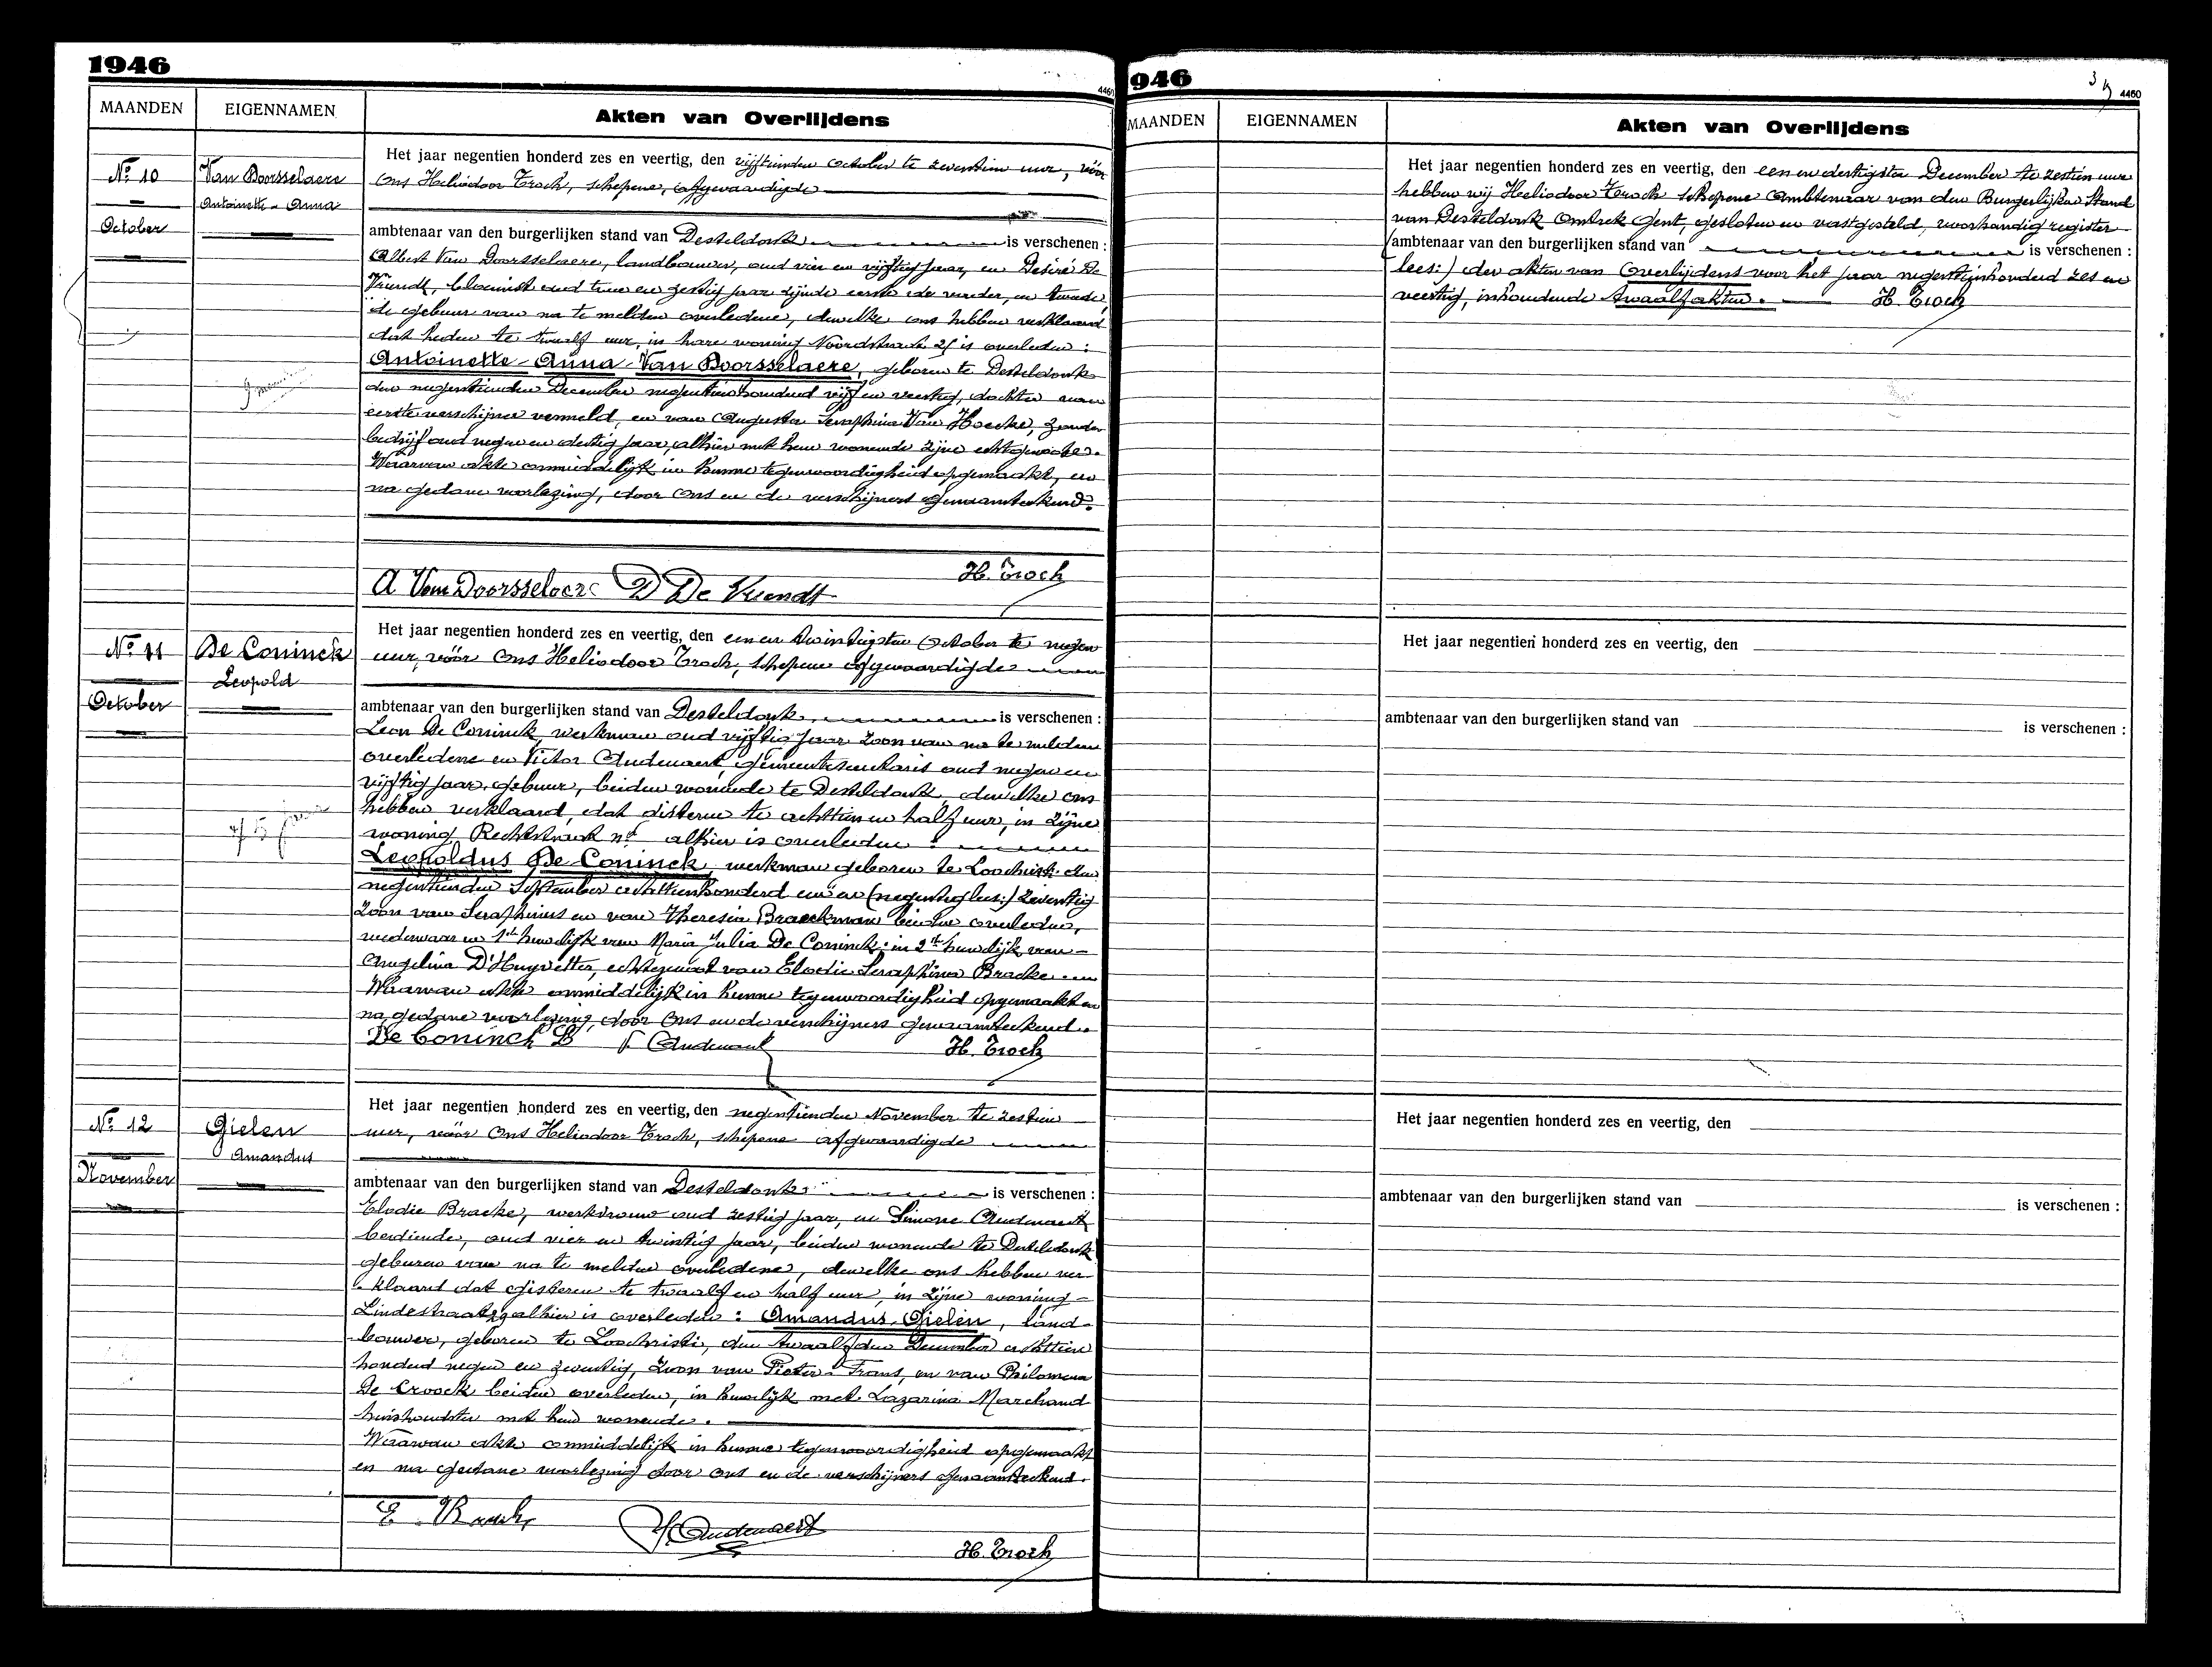 1946
4460
MAANDEN
EIGENNAMEN
Akten van Overlijdens
No 10
October
Van Doorsselaere
Antoinette - Anna
Het jaar negentien honderd zes en veertig, den vijftienden October te zeventien uur, vóór
Ons Heliodoor Troch, schepene, afgevaardigde
ambtenaar van den burgerlijken stand van Desteldonk is verschenen :
Albert Van Doorsselaere, landbouwer, oud vier en vijftig jaar, en Desiré De
Vriendt, bloemist oud twee en zestig jaar zijnde eerste de vader, en tweede
de gebuur van na te melden overledene, dewelke ons hebben verklaard
dat heden te twaalf uur, in hare woning Noordstraat 21 is overleden :
Antoinette - Anna - Van Doorsselaere, geboren te Desteldonk
den negentienden December negentienhonderd vijf en veertig, dochter van
eerste verschijner vermeld, en van Augusta Seraphina Van Hoecke, zonder
bedrijf oud negen en dertig jaar, alhier met hem wonende zijne echtgenoote.
Waarvan akte onmiddelijk in hunne tegenwoordigheid opgemaakt, en
na gedane voorlezing, door Ons en de verschijners genaamteekend.
H. Troch
A Van Doorsselaere D De Vriendt
No 11
October
De Coninck
Leopold
Het jaar negentien honderd zes en veertig, den een en twintigsten October te negen
uur, vóór Ons Heliodoor Troch, schepene afgevaardigde
ambtenaar van den burgerlijken stand van Desteldonk, is verschenen :
Leon De Coninck, werkman oud vijftig jaar zoon van na te melden
overledene en Victor Audenaert, gemeentesecretaris oud negen en
vijftig jaar, gebuur, beiden wonende te Desteldonk, dewelke ons
hebben verklaard, dat gisteren te achttien en half uur, in zijne
woning Rechtstraat no alhier is overleden :
Leopoldus De Coninck, werkman geboren te Loochristi den
negentienden September achttienhonderd een en (negentig lees:) zeventig
Zoon van Seraphinus en van Theresia Braeckman beiden overleden,
weduwaar in 1ste huwelijk van Maria Julia De Coninck; in 2de huwelijk van
Angelina D'Huyvetter, echtgenoot van Elodie Seraphina Bracke.
Waarvan akte onmiddelijk in hunne tegenwoordigheid opgemaakt en
na gedane voorlezing, door Ons en de verschijners genaamteekend.
De Coninck L V. Audenaert H. Troch
No 12
November
Gielen
Amandus
Het jaar negentien honderd zes en veertig, den negentienden November te zestien
uur, vóór Ons Heliodoor Troch, schepene afgevaardigde
ambtenaar van den burgerlijken stand van Desteldonk is verschenen :
Elodie Bracke, werkvrouw oud zestig jaar, en Simone Audenaert
bediende, oud vier en twintig jaar, beiden wonende te Desteldonk
geburen van na te melden overledene, dewelke ons hebben ver-
klaard dat gisteren te twaalf en half uur, in zijne woning
Lindestraat alhier is overleden : Amandus Gielen, land-
bouwer, geboren te Loochristi, den twaalfden December achttien
honderd negen en zeventig, zoon van Pieter - Frans, en van Philomena
De Croock beiden overleden, in huwelijk met Lazarina Marchand
huishoudster met hem wonende.
Waarvan akte onmiddelijk in hunne tegenwoordigheid opgemaakt
en na gedane voorlezing door Ons en de verschijners genaamteekend.
E. Bracke
S. Audenaert
H. Troch
946
4460
MAANDEN
EIGENNAMEN
Akten van Overlijdens
Het jaar negentien honderd zes en veertig, den een en dertigsten December te zestien uur
hebben wij Heliodoor Troch Schepene Ambtenaar van den Burgerlijken Stand
van Desteldonk Omtrek Gent, gesloten en vastgesteld, voorhandig register
(ambtenaar van den burgerlijken stand van is verschenen :
lees:) der akten van Overlijdens voor het jaar negentienhonderd zes en
veertig, inhoudende twaalf akten. H. Troch
Het jaar negentien honderd zes en veertig, den
ambtenaar van den burgerlijken stand van is verschenen :
Het jaar negentien honderd zes en veertig, den
ambtenaar van den burgerlijken stand van is verschenen :